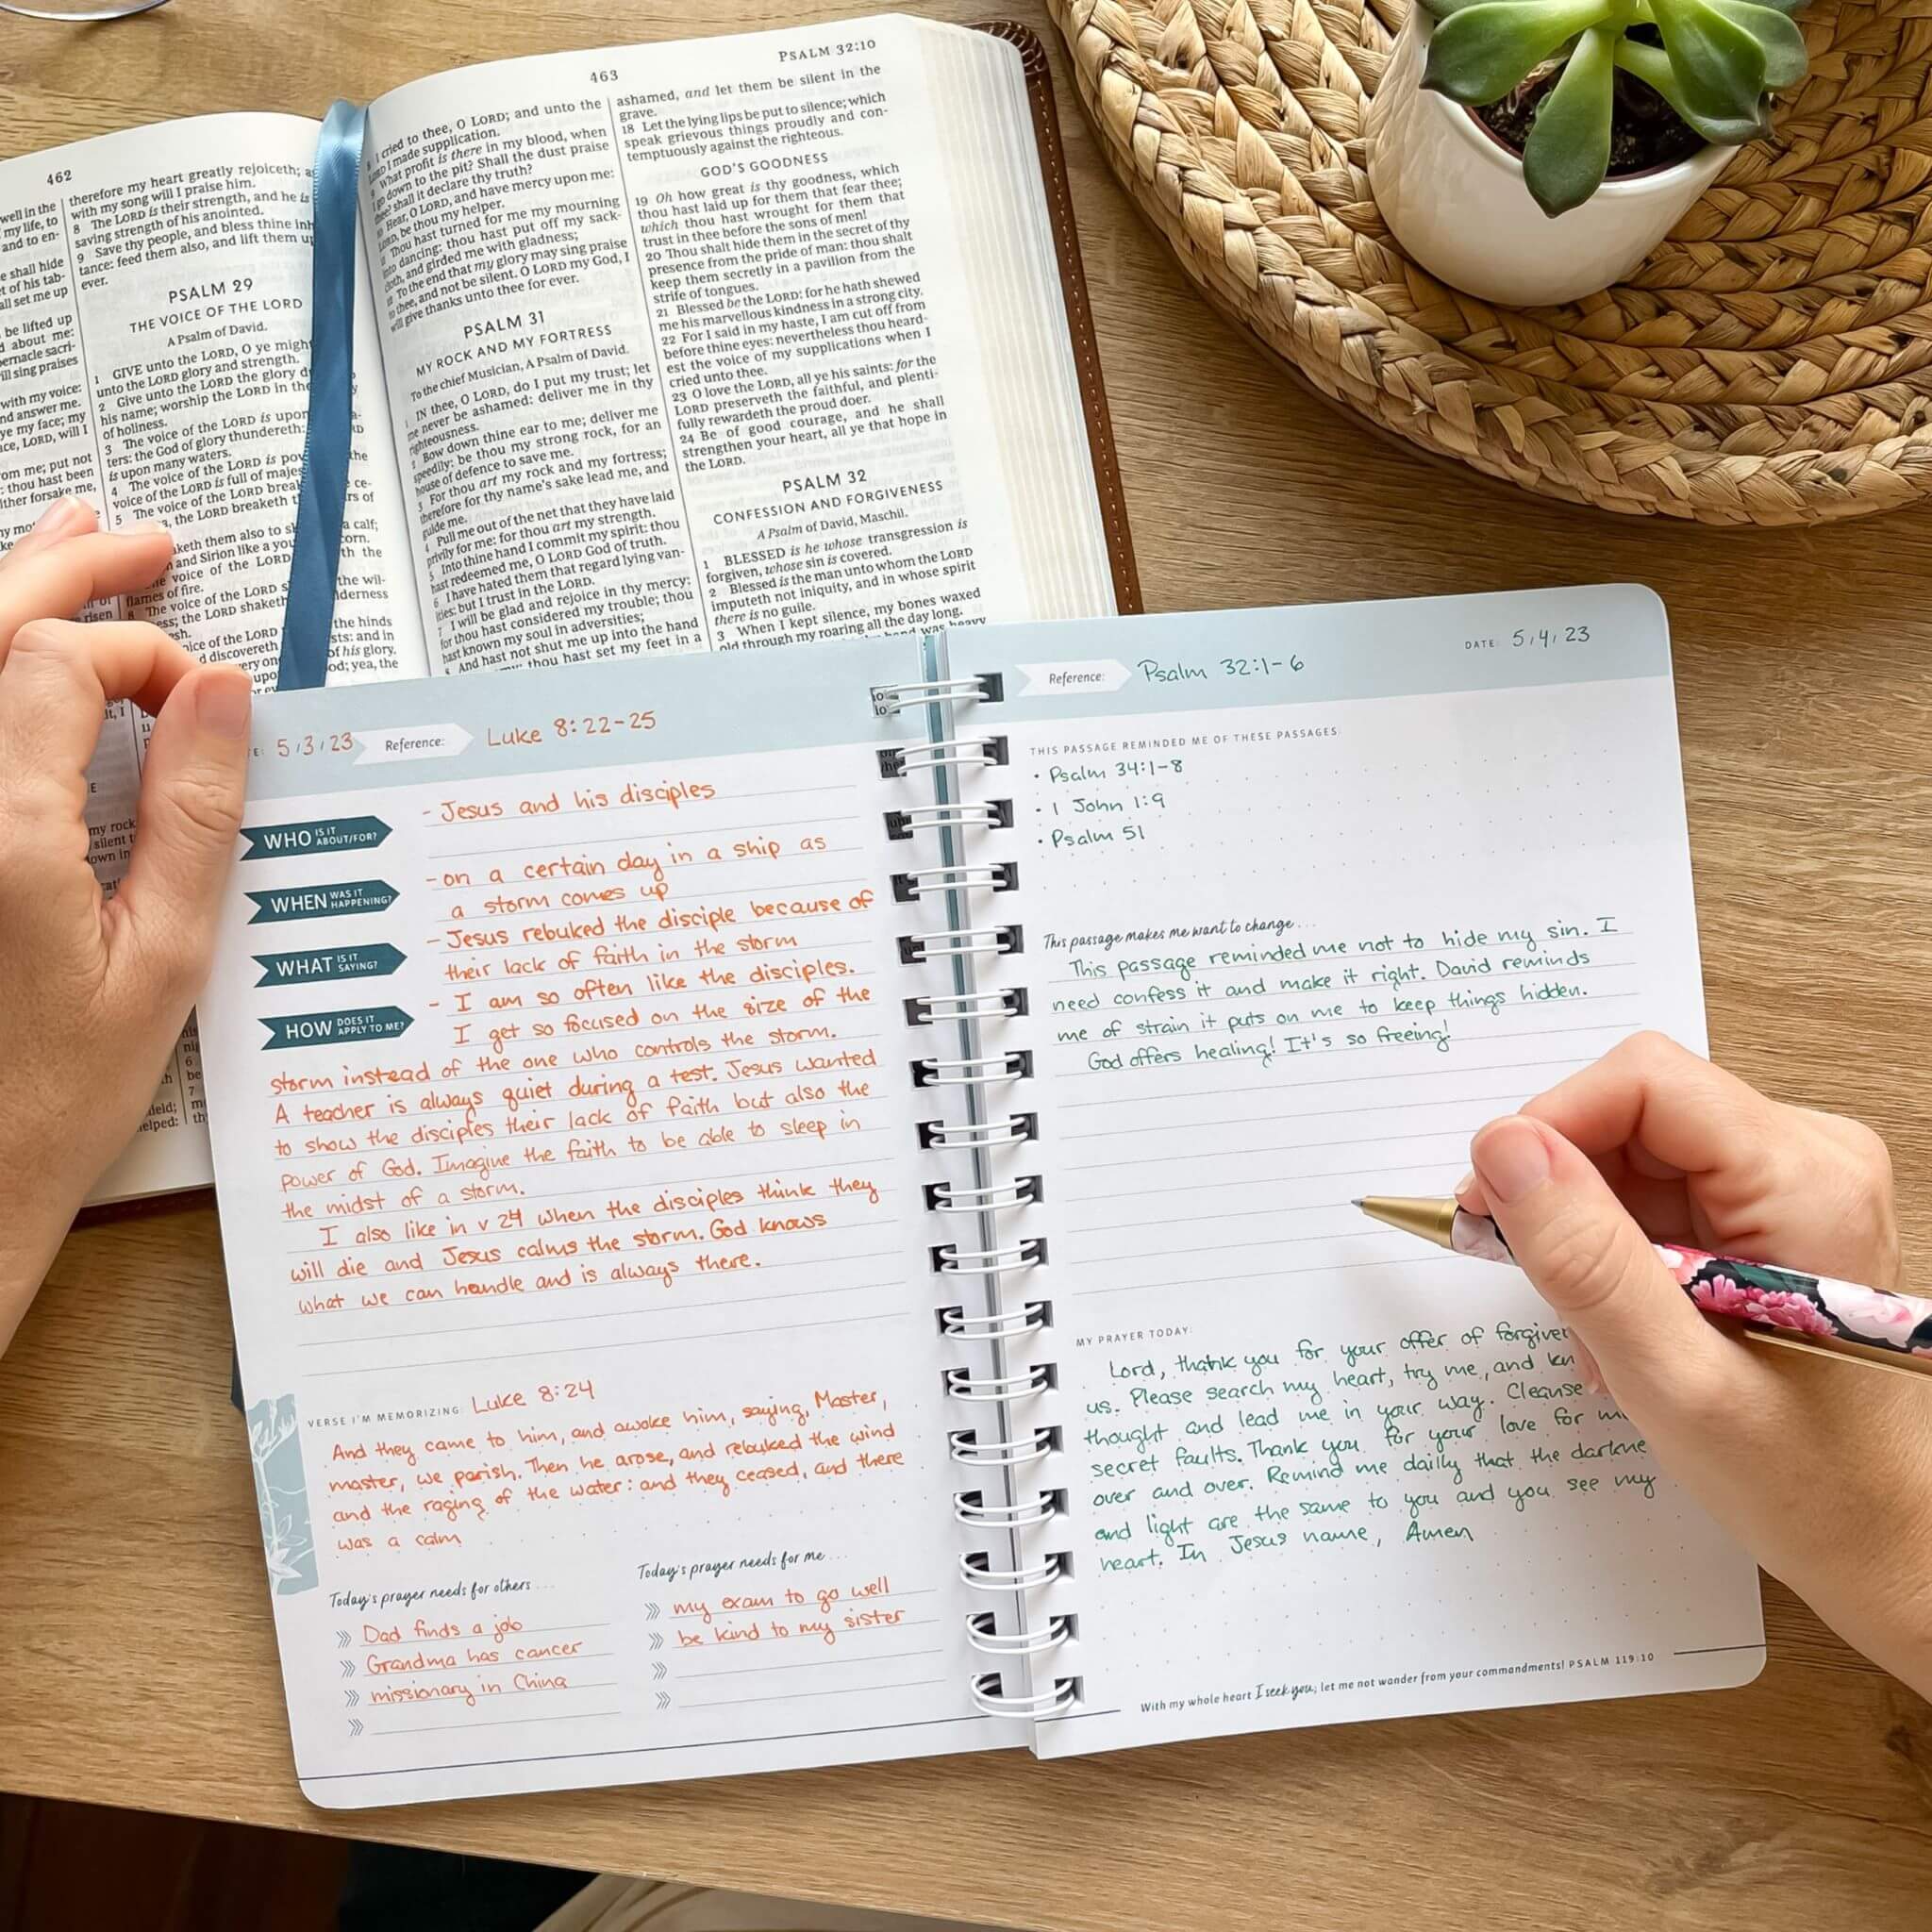 462
therefore my heart greatly rejoiceth;
with my song will I praise him.
8 The LORD is their strength, and he is
saving strength of his anointed.
9 Save thy people, and bless thine
tance: feed them also, and lift them
ever.
PSALM 29
THE VOICE OF THE LORD
A Psalm of David.
1 GIVE unto the LORD, O ye
unto the LORD glory and strength.
2 Give unto the LORD the glory
his name; worship the LORD in the
of holiness.
3 The voice of the LORD is upon
ters: the God of glory thundereth:
is upon many waters.
4 The voice of the LORD is
voice of the LORD is full of
5 The voice of the LORD
the LORD breaketh
463
PSALM 32:10
cried to thee, O LORD; and unto the
I made supplication.
What profit is there in my blood, when
go down to the pit? Shall the dust praise
thee? shall it declare thy truth?
Hear, O LORD, and have mercy upon me:
be thou my helper.
Thou hast turned for me my mourning
into dancing: thou hast put off my sack-
cloth, and girded me with gladness;
To the end that my glory may sing praise
to thee, and not be silent. O LORD my God, I
will give thanks unto thee for ever.
PSALM 31
MY ROCK AND MY FORTRESS
To the chief Musician, A Psalm of David.
IN thee, O LORD, do I put my trust; let
me never be ashamed: deliver me in thy
righteousness.
Bow down thine ear to me; deliver me
speedily: be thou my strong rock, for an
house of defence to save me.
For thou art my rock and my fortress;
therefore for thy name's sake lead me, and
guide me.
Pull me out of the net that they have laid
privily for me: for thou art my strength.
Into thine hand I commit my spirit: thou
hast redeemed me, O LORD God of truth.
I have hated them that regard lying van-
ities: but I trust in the LORD.
I will be glad and rejoice in thy mercy:
for thou hast considered my trouble; thou
hast known my soul in adversities;
And hast not shut me up into the hand
thou hast set my feet in a
ashamed, and let them be silent in the
grave.
18 Let the lying lips be put to silence; which
speak grievous things proudly and con-
temptuously against the righteous.
GOD'S GOODNESS
19 Oh how great is thy goodness, which
thou hast laid up for them that fear thee;
which thou hast wrought for them that
trust in thee before the sons of men!
20 Thou shalt hide them in the secret of thy
presence from the pride of man: thou shalt
keep them secretly in a pavilion from the
strife of tongues.
21 Blessed be the LORD: for he hath shewed
me his marvellous kindness in a strong city.
22 For I said in my haste, I am cut off from
before thine eyes: nevertheless thou heard-
est the voice of my supplications when I
cried unto thee.
23 O love the LORD, all ye his saints: for the
LORD preserveth the faithful, and plenti-
fully rewardeth the proud doer.
24 Be of good courage, and he shall
strengthen your heart, all ye that hope in
the LORD.
PSALM 32
CONFESSION AND FORGIVENESS
A Psalm of David, Maschil.
1 BLESSED is he whose transgression is
forgiven, whose sin is covered.
2 Blessed is the man unto whom the LORD
imputeth not iniquity, and in whose spirit
there is no guile.
3 When I kept silence, my bones waxed
old through my roaring all the day long.
5/3/23 Reference: Luke 8:22-25
WHO IS IT ABOUT/FOR?
- Jesus and his disciples
WHEN WAS IT HAPPENING?
- on a certain day in a ship as
a storm comes up
WHAT IS IT SAYING?
- Jesus rebuked the disciple because of
their lack of faith in the storm
HOW DOES IT APPLY TO ME?
- I am so often like the disciples.
I get so focused on the size of the
storm instead of the one who controls the storm.
A teacher is always quiet during a test. Jesus wanted
to show the disciples their lack of faith but also the
power of God. Imagine the faith to be able to sleep in
the midst of a storm.
I also like in v 24 when the disciples think they
will die and Jesus calms the storm. God knows
what we can handle and is always there.
VERSE I'M MEMORIZING Luke 8:24
And they came to him, and awoke him, saying, Master,
master, we perish. Then he arose, and rebuked the wind
and the raging of the water: and they ceased, and there
was a calm
Today's prayer needs for others ...
Dad finds a job
Grandma has cancer
missionary in China
Today's prayer needs for me ...
my exam to go well
be kind to my sister
Reference: Psalm 32:1-6 DATE: 5/4/23
THIS PASSAGE REMINDED ME OF THESE PASSAGES:
• Psalm 34:1-8
• 1 John 1:9
• Psalm 51
This passage makes me want to change ...
This passage reminded me not to hide my sin. I
need confess it and make it right. David reminds
me of strain it puts on me to keep things hidden.
God offers healing! It's so freeing!
MY PRAYER TODAY:
Lord, thank you for your offer of
us. Please search my heart, try me, and
thought and lead me in your way. Cleanse
secret faults. Thank you for your love for
over and over. Remind me dailly that the
and light are the same to you and you see my
heart. In Jesus name, Amen
With my whole heart I seek you; let me not wander from your commandments! PSALM 119:10